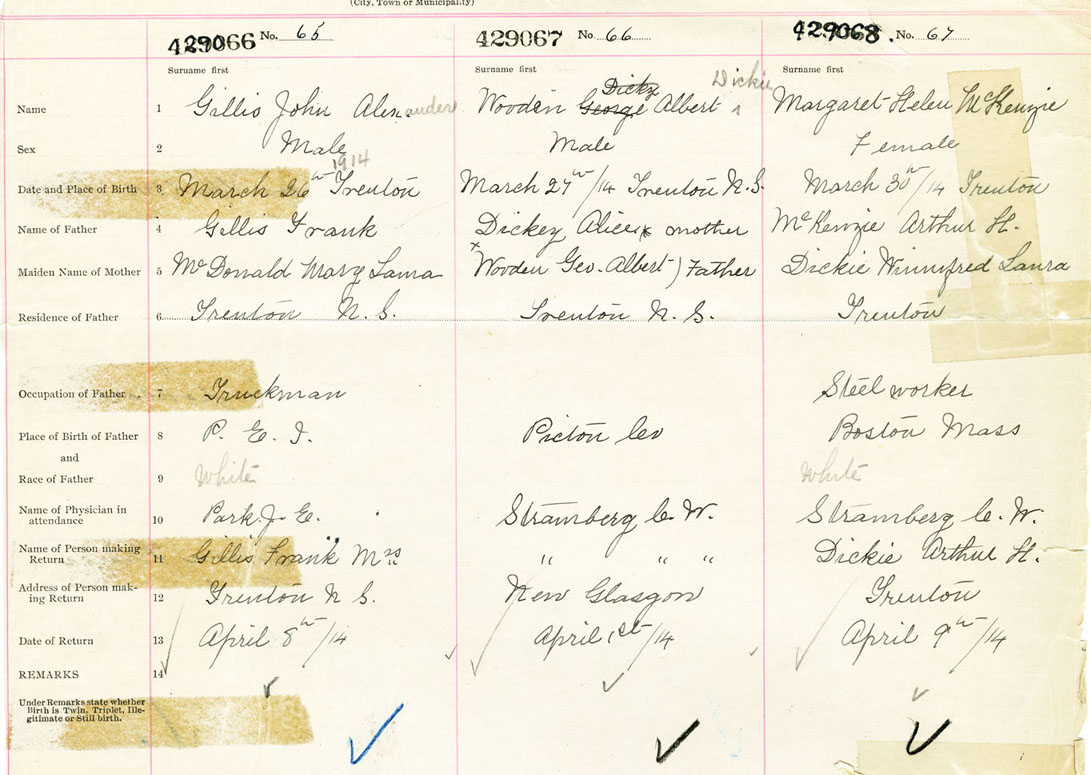 (City, Town or Municipality)
429066 No. 65 429067 No. 66 429068. No. 67
Surname first Surname first Surname first
Dicky Dickie
Name 1 Gillis John Alexander Wooden George Albert Margaret Helen McKenzie
Sex 2 Male Male Female
1914
Date and Place of Birth 3 March 26th Trenton March 27th/14 Trenton N.S. March 30th/14 Trenton
Name of Father 4 Gillis Frank Dickey Alice x mother McKenzie Arthur H.
Maiden Name of Mother 5 McDonald Mary Laura x Wooden Geo. Albert) Father Dickie Winnifred Laura
Residence of Father 6 Trenton N.S. Trenton N.S. Trenton
Occupation of Father 7 Truckman Steel worker
Place of Birth of Father 8 P. E. I. Pictou Co Boston Mass
and
Race of Father 9 White White
Name of Physician in
attendance 10 Park J. E. Stramberg C. W. Stramberg C. W.
Name of Person making
Return 11 Gillis Frank Mrs " " " Dickie Arthur H.
Address of Person mak-
ing Return 12 Trenton N S. New Glasgow Trenton
Date of Return 13 April 8th/14 April 1st/14 April 9th/14
REMARKS 14
Under Remarks state whether
Birth is Twin, Triplet, Ille-
gitimate or Still birth.